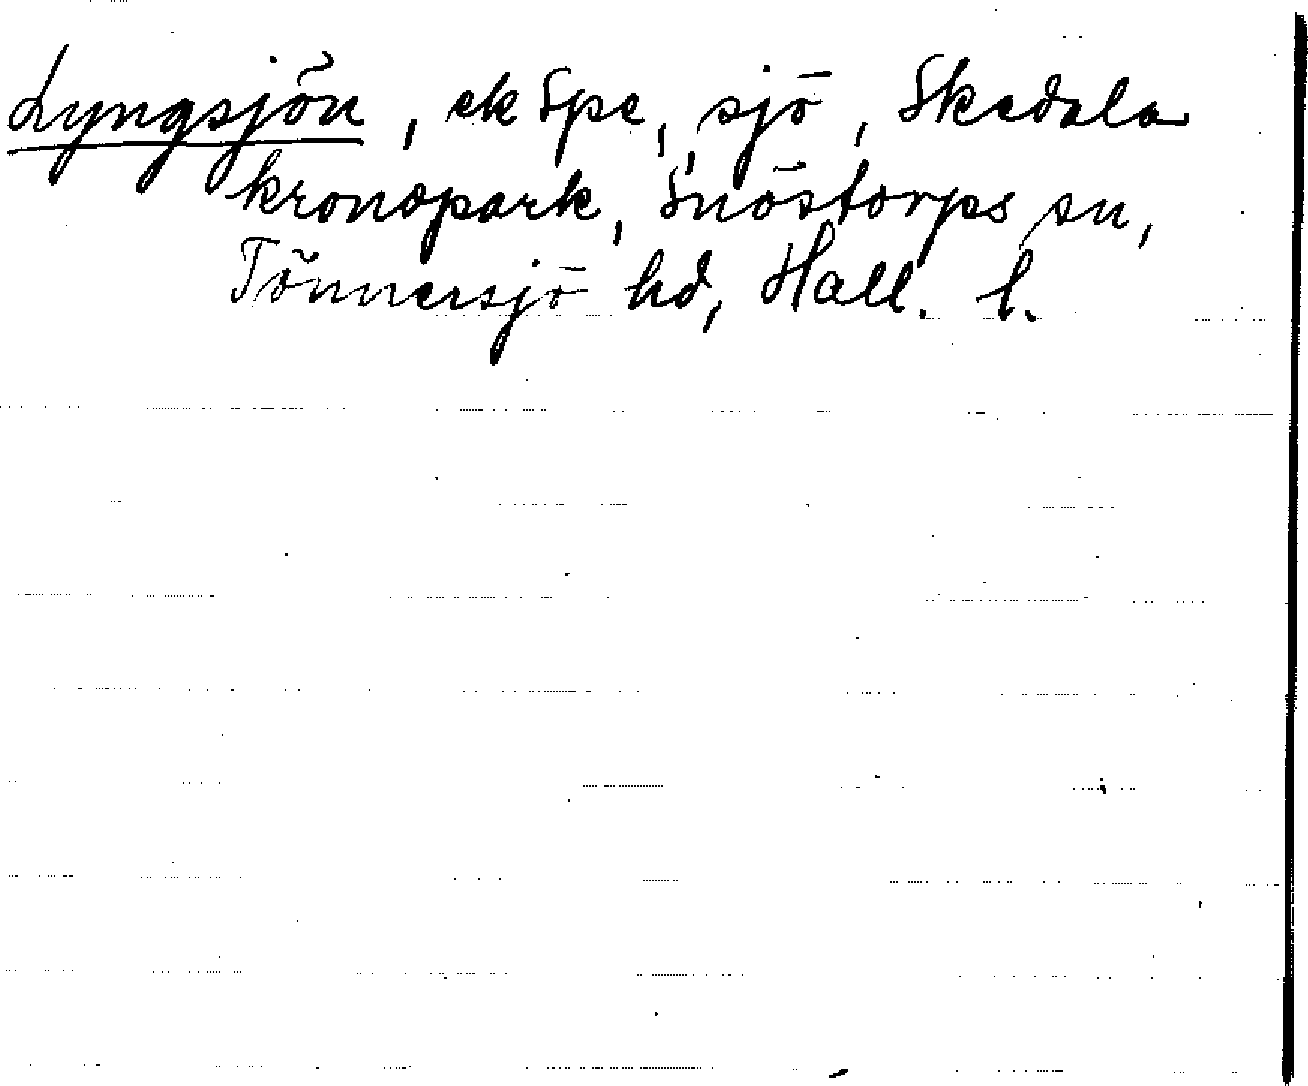 Lyngsjön, ek Spe, sjö, Skedala
kronopark, Snöstorps sn,
Tönnersjö hd, Hall. l.